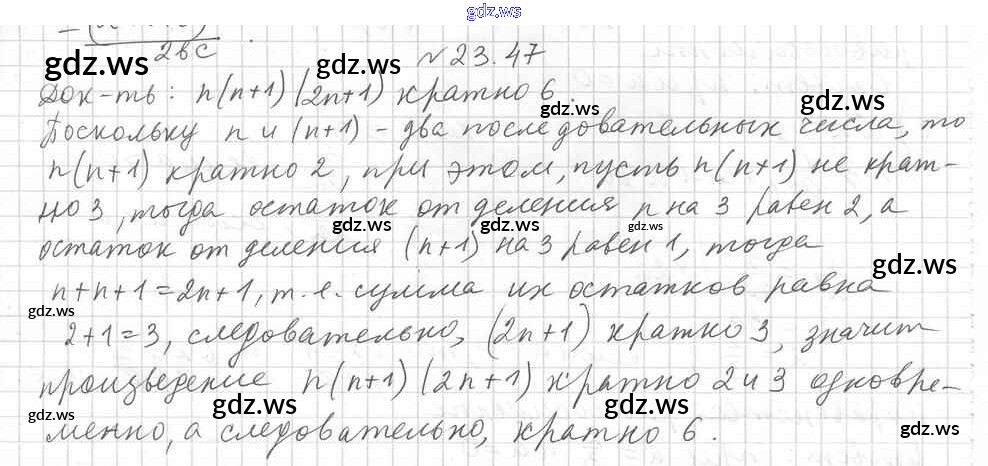 gdz.ws
2bc
№ 23.47
Док-ть: n(n+1)(2n+1) кратно 6.
Поскольку n и (n+1) - два последовательных числа, то
n(n+1) кратно 2, при этом, пусть n(n+1) не крат-
но 3, тогда остаток от деления n на 3 равен 2, а
остаток от деления (n+1) на 3 равен 1, тогда
n+n+1=2n+1, т.е. сумма их остатков равна
2+1=3, следовательно, (2n+1) кратно 3, значит
произведение n(n+1)(2n+1) кратно 2 и 3 одновре-
менно, а следовательно, кратно 6.
gdz.ws
gdz.ws
gdz.ws
gdz.ws
gdz.ws
gdz.ws
gdz.ws
gdz.ws
gdz.ws
gdz.ws
gdz.ws
gdz.ws
gdz.ws